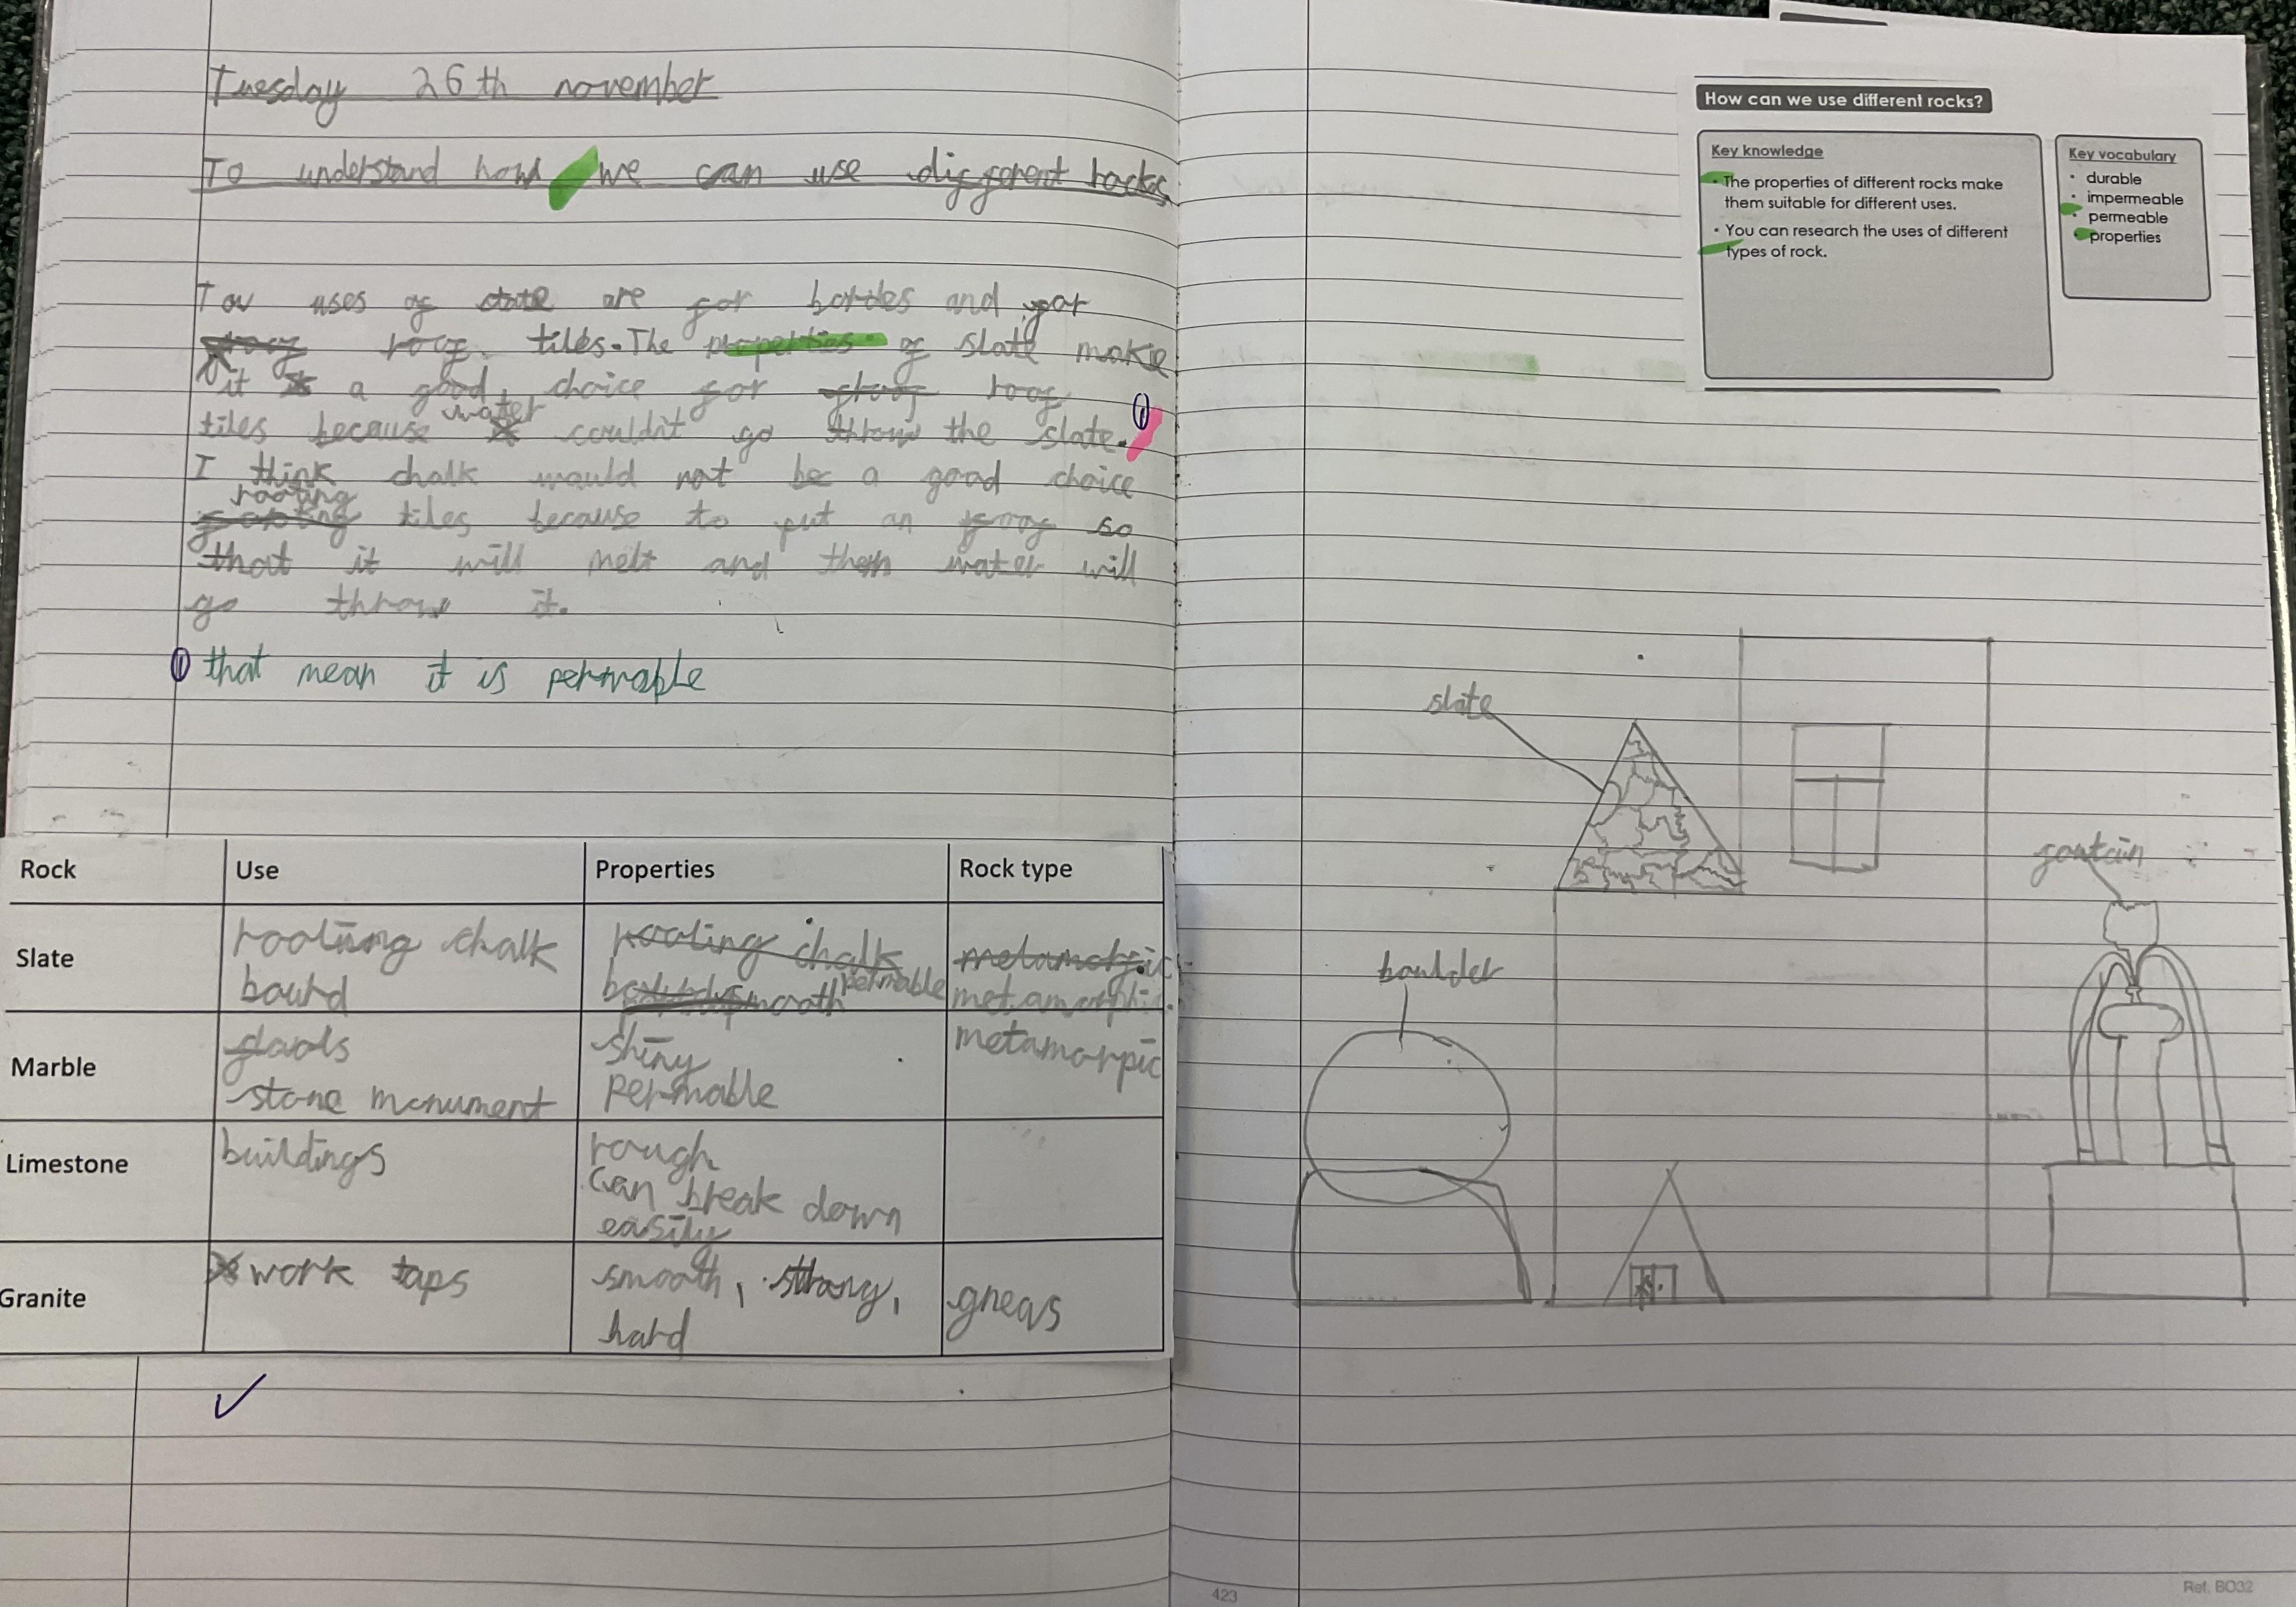 Tuesday 26th november
To understand how we can use different rocks
uses of slate are for and for
roof tiles. The properties of slate make
it a good choice for roof
tiles because water couldn't go throw the slate.
I think chalk would not be a good choice
roofing tiles because to put on so
that it will melt and then water will
go throw it.
1 that mean it is permable
Rock Use Properties Rock type
Slate
chalk
bourd
smooth permable
metamorphic
Marble
stone monument
shiny
permable
metamorpic
Limestone
buildings
rough
can break down
easily
Granite
work taps
smooth, strong,
hard
gneas
How can we use different rocks?
Key knowledge
• The properties of different rocks make
them suitable for different uses.
• You can research the uses of different
types of rock.
Key vocabulary
• durable
• impermeable
• permeable
• properties
slate
boulder
fontain
423
Ref. BO32